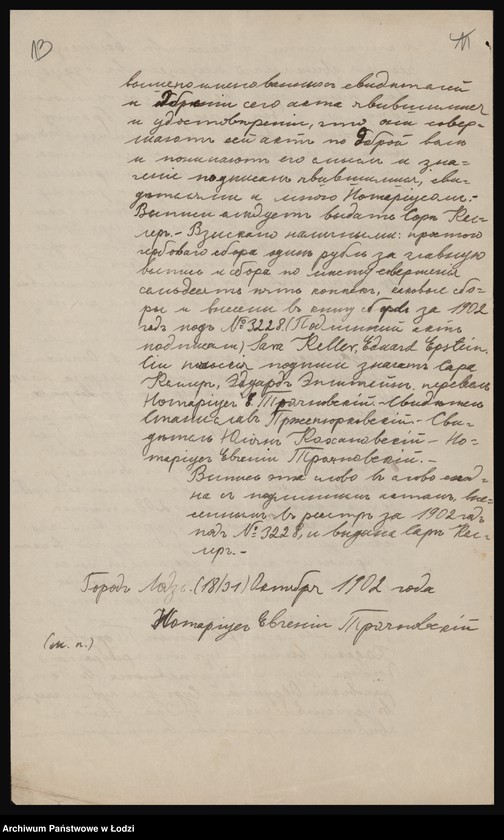 13
вышепоименованныхъ свидѣтелей
и сего акта явившимися
и удостовѣреніи, что они совер-
шаютъ сей актъ по доброй волѣ
и понимаютъ его смыслъ и зна-
ченіе подписанъ явившимися, сви-
дѣтелями и мною Нотаріусомъ.-
Выпись слѣдуетъ выдать Сарѣ Кел-
леръ.- Взыскано наличными: простого
гербоваго сбора одинъ рубль за главную
выпись и сбора по мѣсту совершенія
семьдесятъ пять копѣекъ, каковые сбо-
ры и внесены въ книгу сборовъ за 1902
годъ подъ № 3228. (Подлинный актъ
подписали) Sara Keller, Eduard Epstein.
Сіи подписи значатъ Сара
Келлеръ, Эдуардъ Эпштейнъ, перевелъ
Нотаріусъ Е. Трояновскій.- Свидѣтель
Станиславъ Пржепюрковскій.- Сви-
дѣтель Юліанъ Кохановскій - Но-
таріусъ Евгеній Трояновскій.-
Выпись эта слово въ слово сход-
на съ подлиннымъ актомъ, вне-
сеннымъ въ реестръ за 1902 годъ
подъ № 3228, и выдана Сарѣ Кел-
леръ.-
Городъ Лодзь. (18/31) Октября 1902 года
Нотаріусъ Евгеній Трояновскій
(м. п.)
Archiwum Państwowe w Łodzi